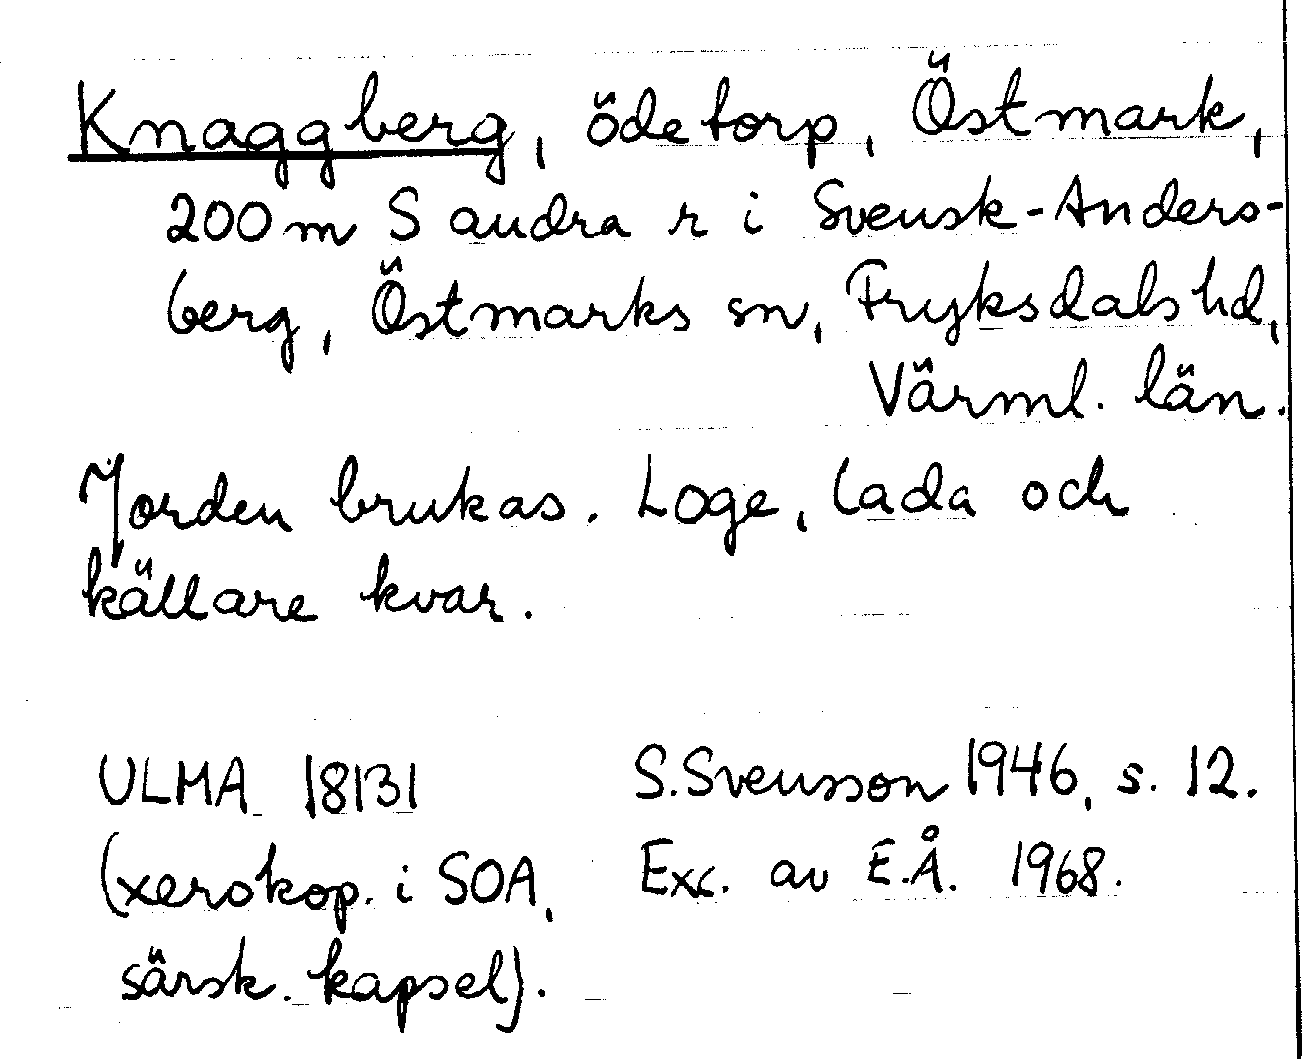 Knaggberg, ödetorp, Östmark,
200 m S andra r i Svensk-Anders-
berg, Östmarks sn, Fryksdals hd,
Värml. län.
Jorden brukas. Loge, lada och
källare kvar.
ULMA 18131 S. Svensson 1946, s. 12.
(xerokop. i SOA, Exc. av E.Å. 1968.
särsk. kapsel).